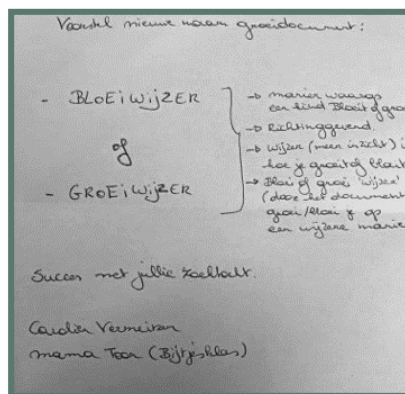 Voorstel nieuwe naam groeidocument:
- BLOEiWijZER
of
- GROEiWijZER
-> manier waarop
een kind Bloeit of groe
-> Richtinggevend.
-> Wijzer (meer inzicht) i
hoe je groeit of bloeit
-> Bloei of groei 'wijzer'
(door het document
groei/bloei je op
een wijzere manie
Succes met jullie zoektocht.
Vermeiren
mama Toon (Bijtjesklas)